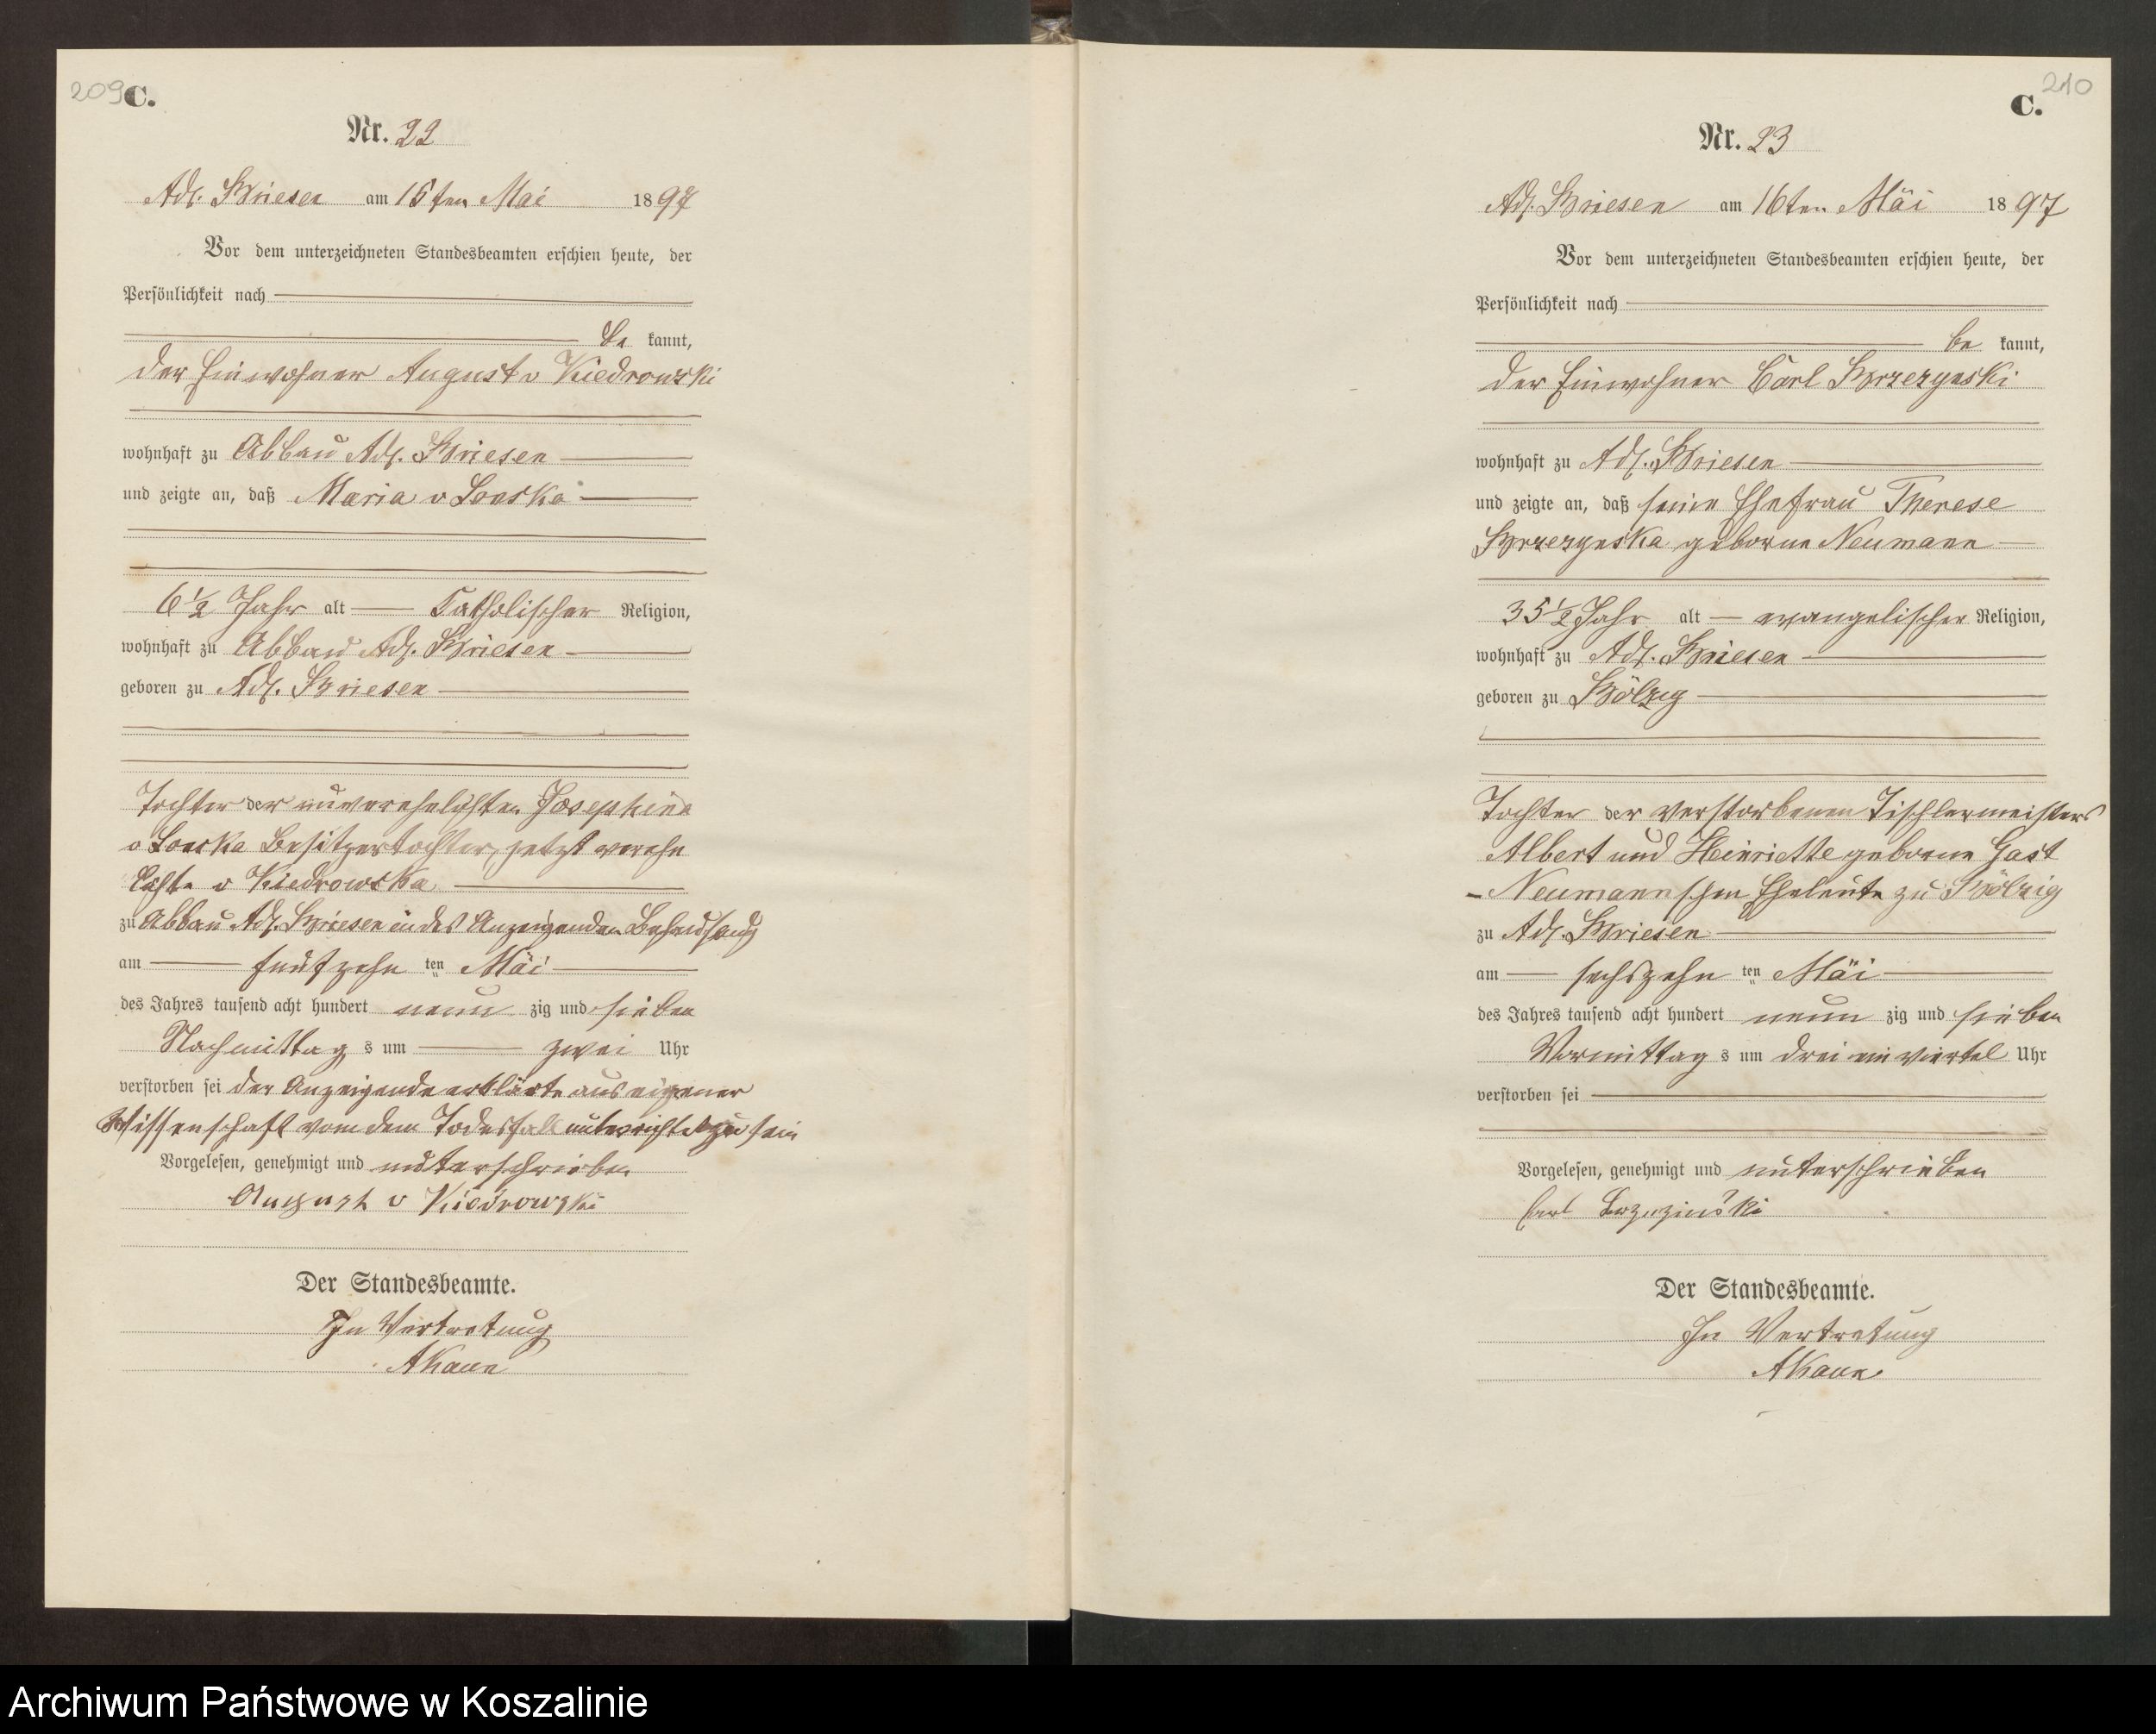 209
C.
Nr. 22
Adl. Briesen am 15ten Mai 1897
Vor dem unterzeichneten Standesbeamten erschien heute, der
Persönlichkeit nach
be kannt,
der Einwohner August v Kiedrowski
wohnhaft zu Abbau Adl. Briesen
und zeigte an, daß Maria v
6 1/2 Jahr alt katholischer Religion,
wohnhaft zu Abbau Adl. Briesen
geboren zu Adl. Briesen
Tochter der unverehelichten Josephine
v Besitzertochter, jetzt verehe
lichte v Kiedrowska
zu Abbau Adl. Briesen in des Anzeigenden Behausung
am fünfzehn ten Mai
des Jahres tausend acht hundert neun zig und sieben
Nachmittag s um zwei Uhr
verstorben sei der Anzeigende erklärte aus eigener
Wissenschaft von dem Todesfall unterrichtet zu sein
Vorgelesen, genehmigt und unterschrieben
August v Kiedrowski
Der Standesbeamte.
In Vertretung
210
C.
Nr. 23
Adl. Briesen am 16ten Mai 1897
Vor dem unterzeichneten Standesbeamten erschien heute, der
Persönlichkeit nach
be kannt,
der Einwohner Carl Brzezynski
wohnhaft zu Adl. Briesen
und zeigte an, daß seine Ehefrau Therese
Brzezynska geborne Neumann
35 1/2 Jahr alt evangelischer Religion,
wohnhaft zu Adl. Briesen
geboren zu Bölzig
Tochter der verstorbenen Tischlermeisters
Albert und Heinriette geborne Gast
-Neumannschen Eheleute zu Bölzig
zu Adl. Briesen
am sechszehn ten Mai
des Jahres tausend acht hundert neun zig und sieben
Vormittag s um drei ein viertel Uhr
verstorben sei
Vorgelesen, genehmigt und unterschrieben
Carl
Der Standesbeamte.
In Vertretung
Archiwum Państwowe w Koszalinie